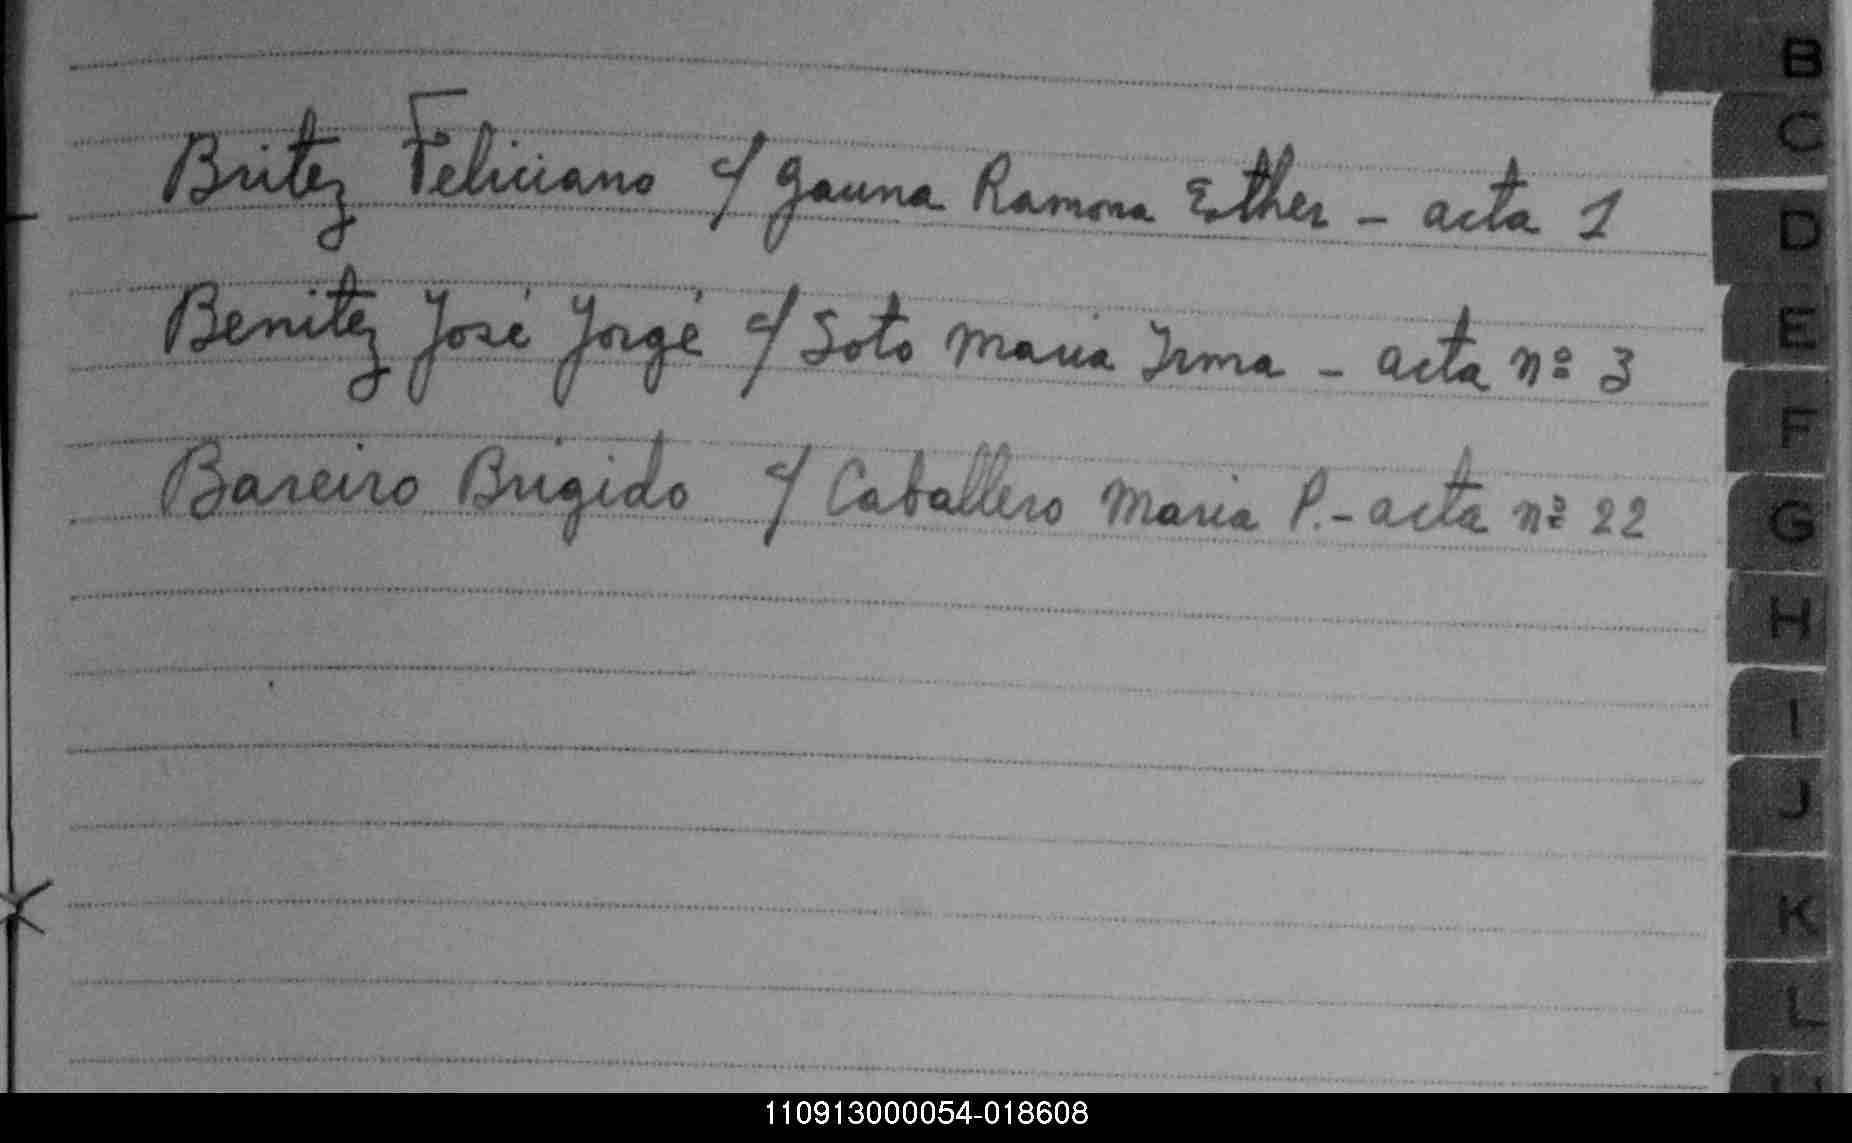 B
C
Britez Feliciano c/ Gauna Ramona Esther - acta 1
D
E
Benitez José Jorgé c/ Soto Maria Irma - acta nº 3
F
Bareiro Brigido c/ Caballero Maria P. - acta nº 22
G
H
I
J
K
L
110913000054-018608